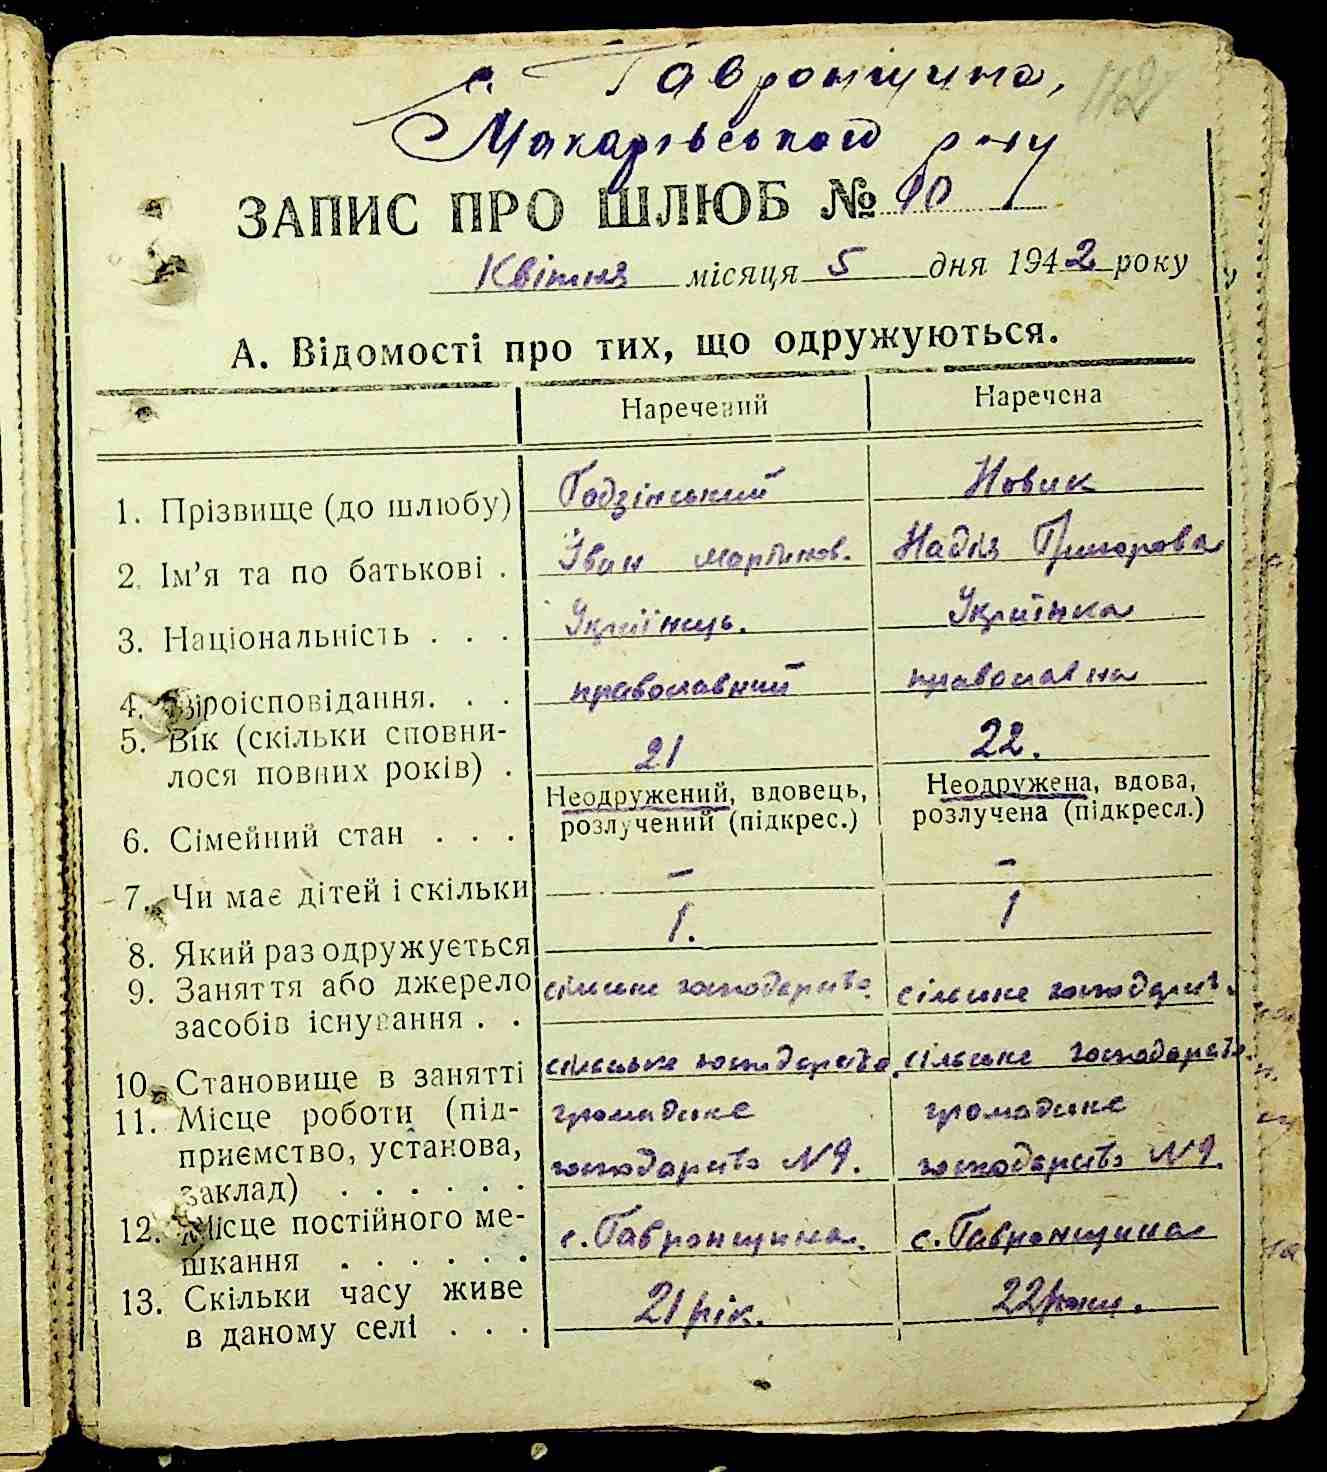 с. Гавронщина,
Макарівського р-ну
ЗАПИС ПРО ШЛЮБ № 10
Квітня місяця 5 дня 1942 року
А. Відомості про тих, що одружуються.
Наречений Наречена
1. Прізвище (до шлюбу) Годзінський Новик
2. Ім'я та по батькові . Іван Мартинов. Надія Григорова
3. Національність . . . Українець. Українка
4. Віроісповідання. . . православний православна
5. Вік (скільки сповни-
лося повних років) . 21 22.
6. Сімейний стан . . . Неодружений, вдовець, розлучений (підкрес.) Неодружена, вдова, розлучена (підкресл.)
7. Чи має дітей і скільки – –
8. Який раз одружується 1. 1
9. Заняття або джерело
засобів існування . . сільське господарство. сільське господарств.
10. Становище в занятті сільське господарство. сільське господарство.
11. Місце роботи (під-
приємство, установа,
заклад) . . . . . . громадське господарство №9. громадське господарство №9.
12. Місце постійного ме-
шкання . . . . . . с. Гавронщина. с. Гавронщина
13. Скільки часу живе
в даному селі . . . 21 рік. 22 роки.